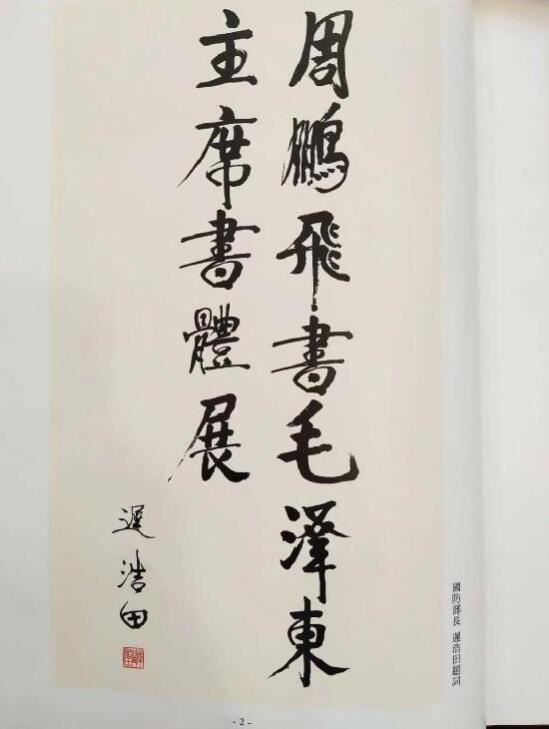 周鵬飛書毛澤東
主席書體展
遲浩田
國防部長 遲浩田題詞
- 2 -